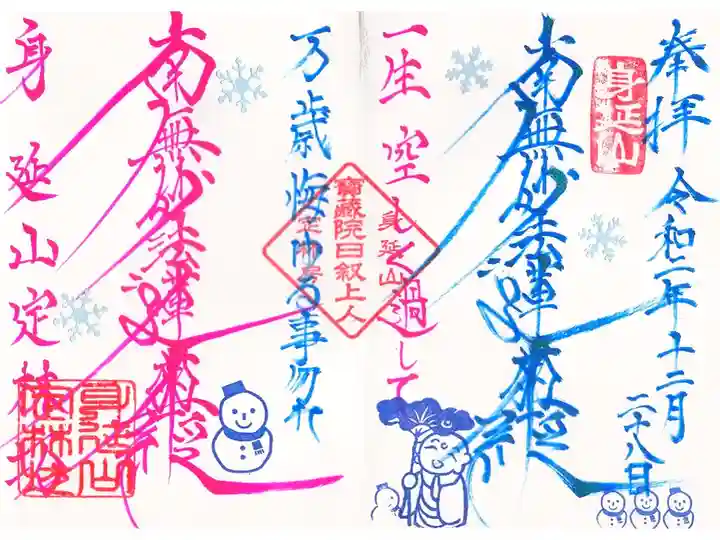 奉拝
令和二年十二月
二十八日
身延山
南無妙法蓮華経
一生空しく過して
身延山
寶蔵院日叙上人
定林坊
万歳悔ゆる事勿れ
南無妙法蓮華経
身延山定林坊
身延山
定林坊